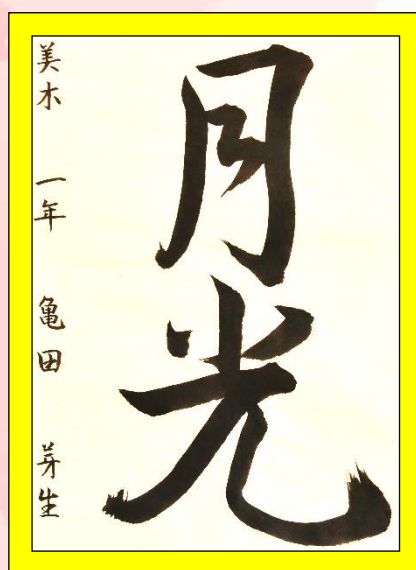 月光
美木 一年 亀田 芽生